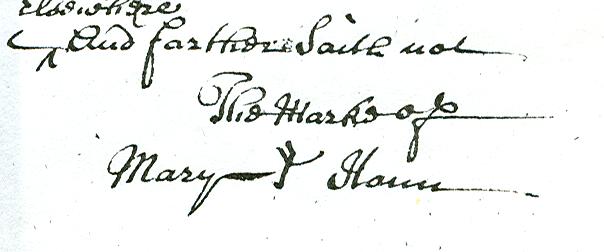 elsewhere
And farther Saith not
The Marke of
Mary Hann